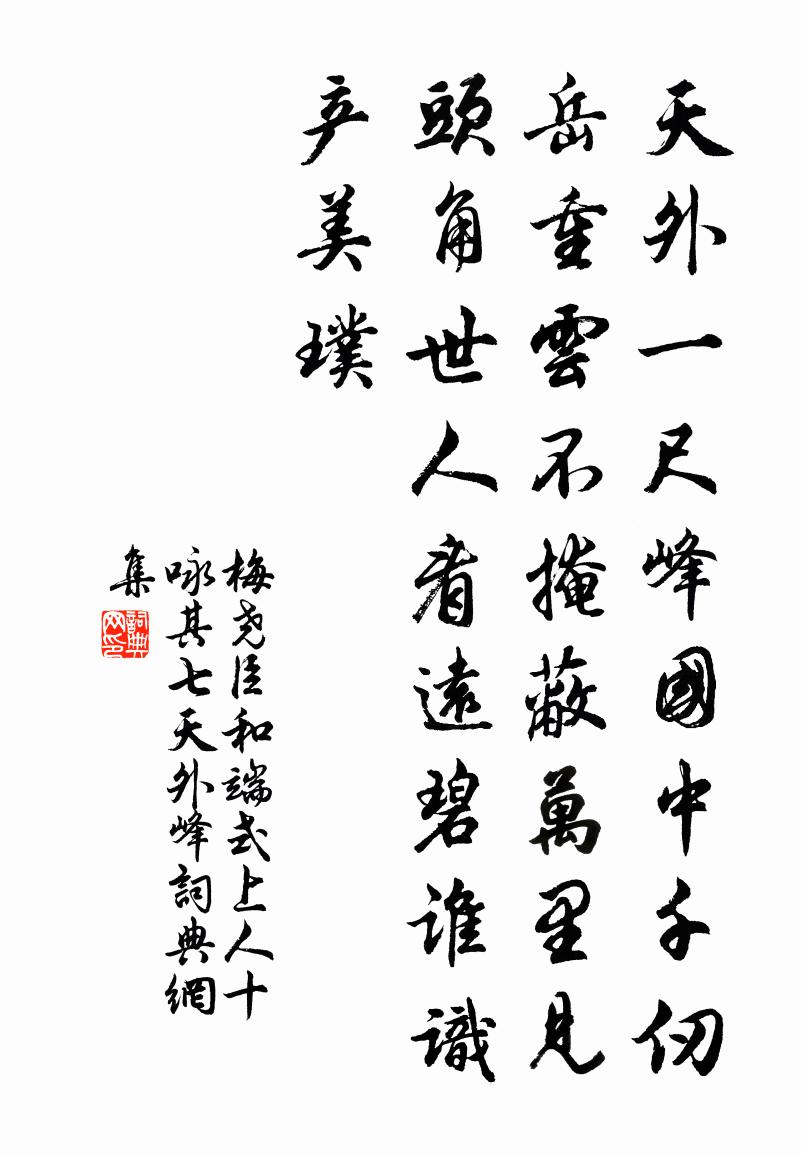 天外一尺峰國中千仞
岳重雲不掩蔽萬里見
頭角世人看遠碧誰識
产美璞
梅尧臣和端式上人十
咏其七天外峰詞典網
集
詞典網印